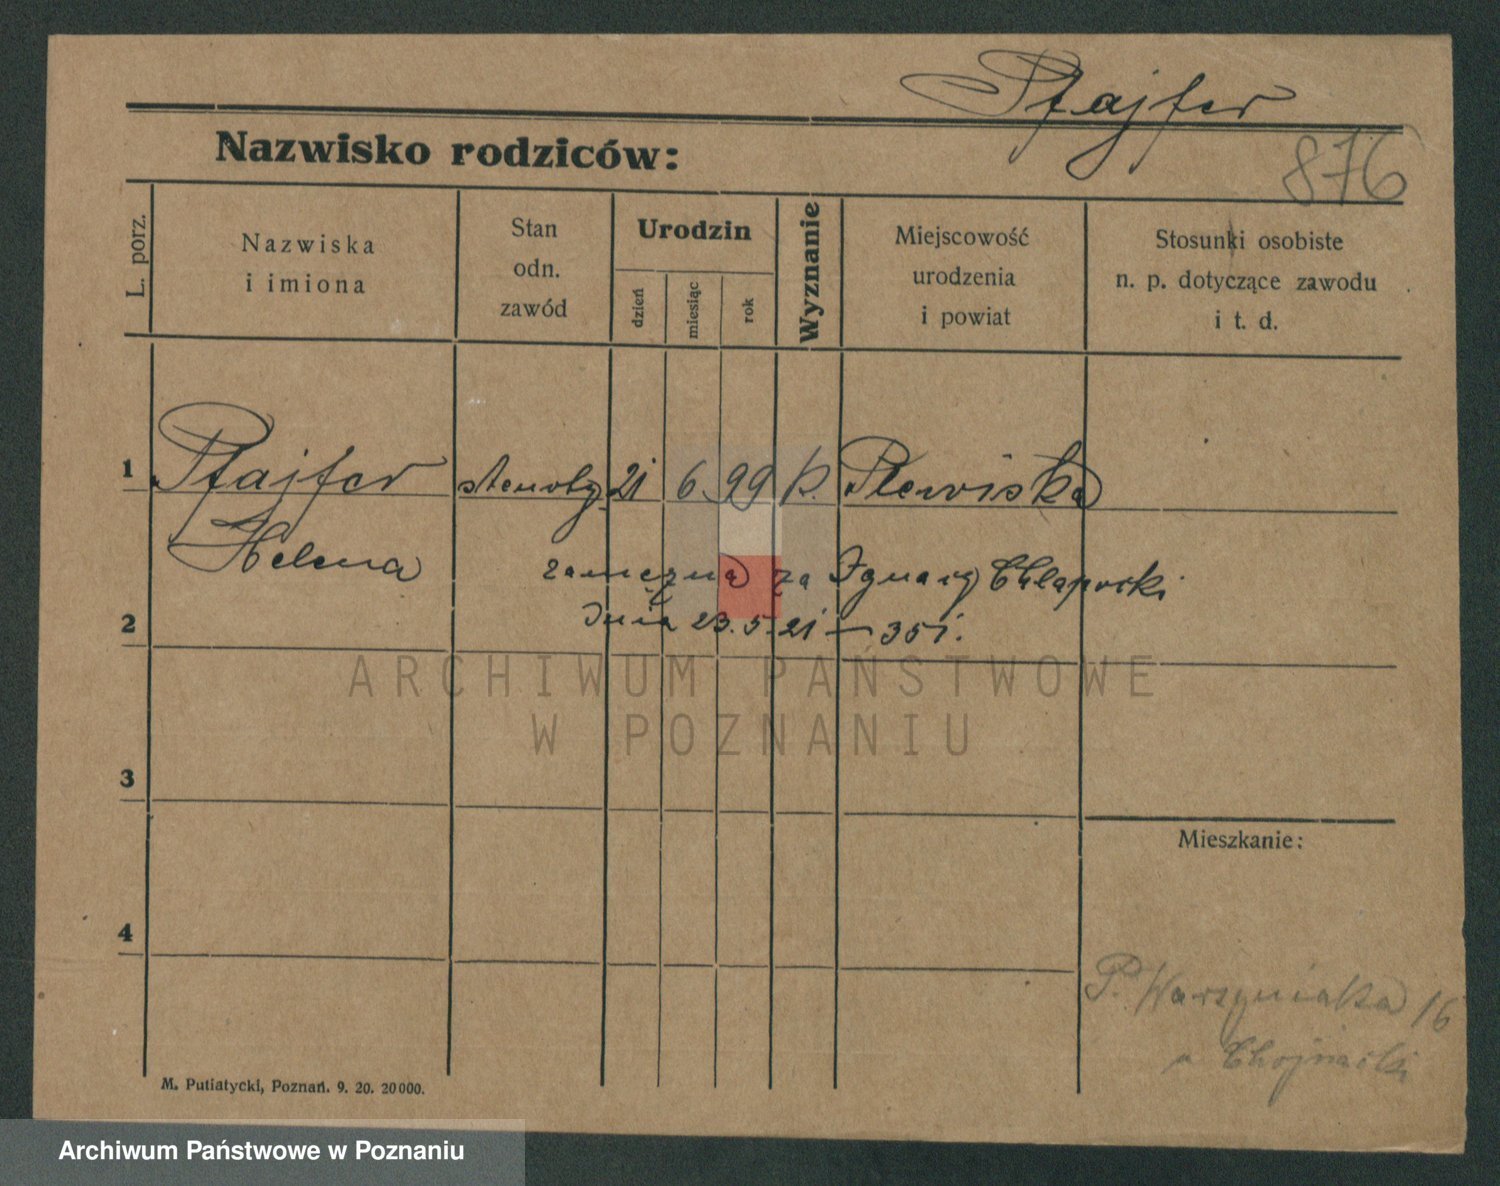 Pfajfer
Nazwisko rodziców:
876
L. porz.
Nazwiska
i imiona
Stan
odn.
zawód
Urodzin
dzień
miesiąc
rok
Wyznanie
Miejscowość
urodzenia
i powiat
Stosunki osobiste
n. p. dotyczące zawodu
i t. d.
1 Pfajfer 21 6. 99 k. Plewiska
Helena
zamężna za Ignacy Chłapowski
dnia 23.5.21 — 351.
2
ARCHIWUM PAŃSTWOWE
W POZNANIU
3
Mieszkanie:
4
P. 16
u Chojnacki
M. Putiatycki, Poznań. 9. 20. 20000.
Archiwum Państwowe w Poznaniu